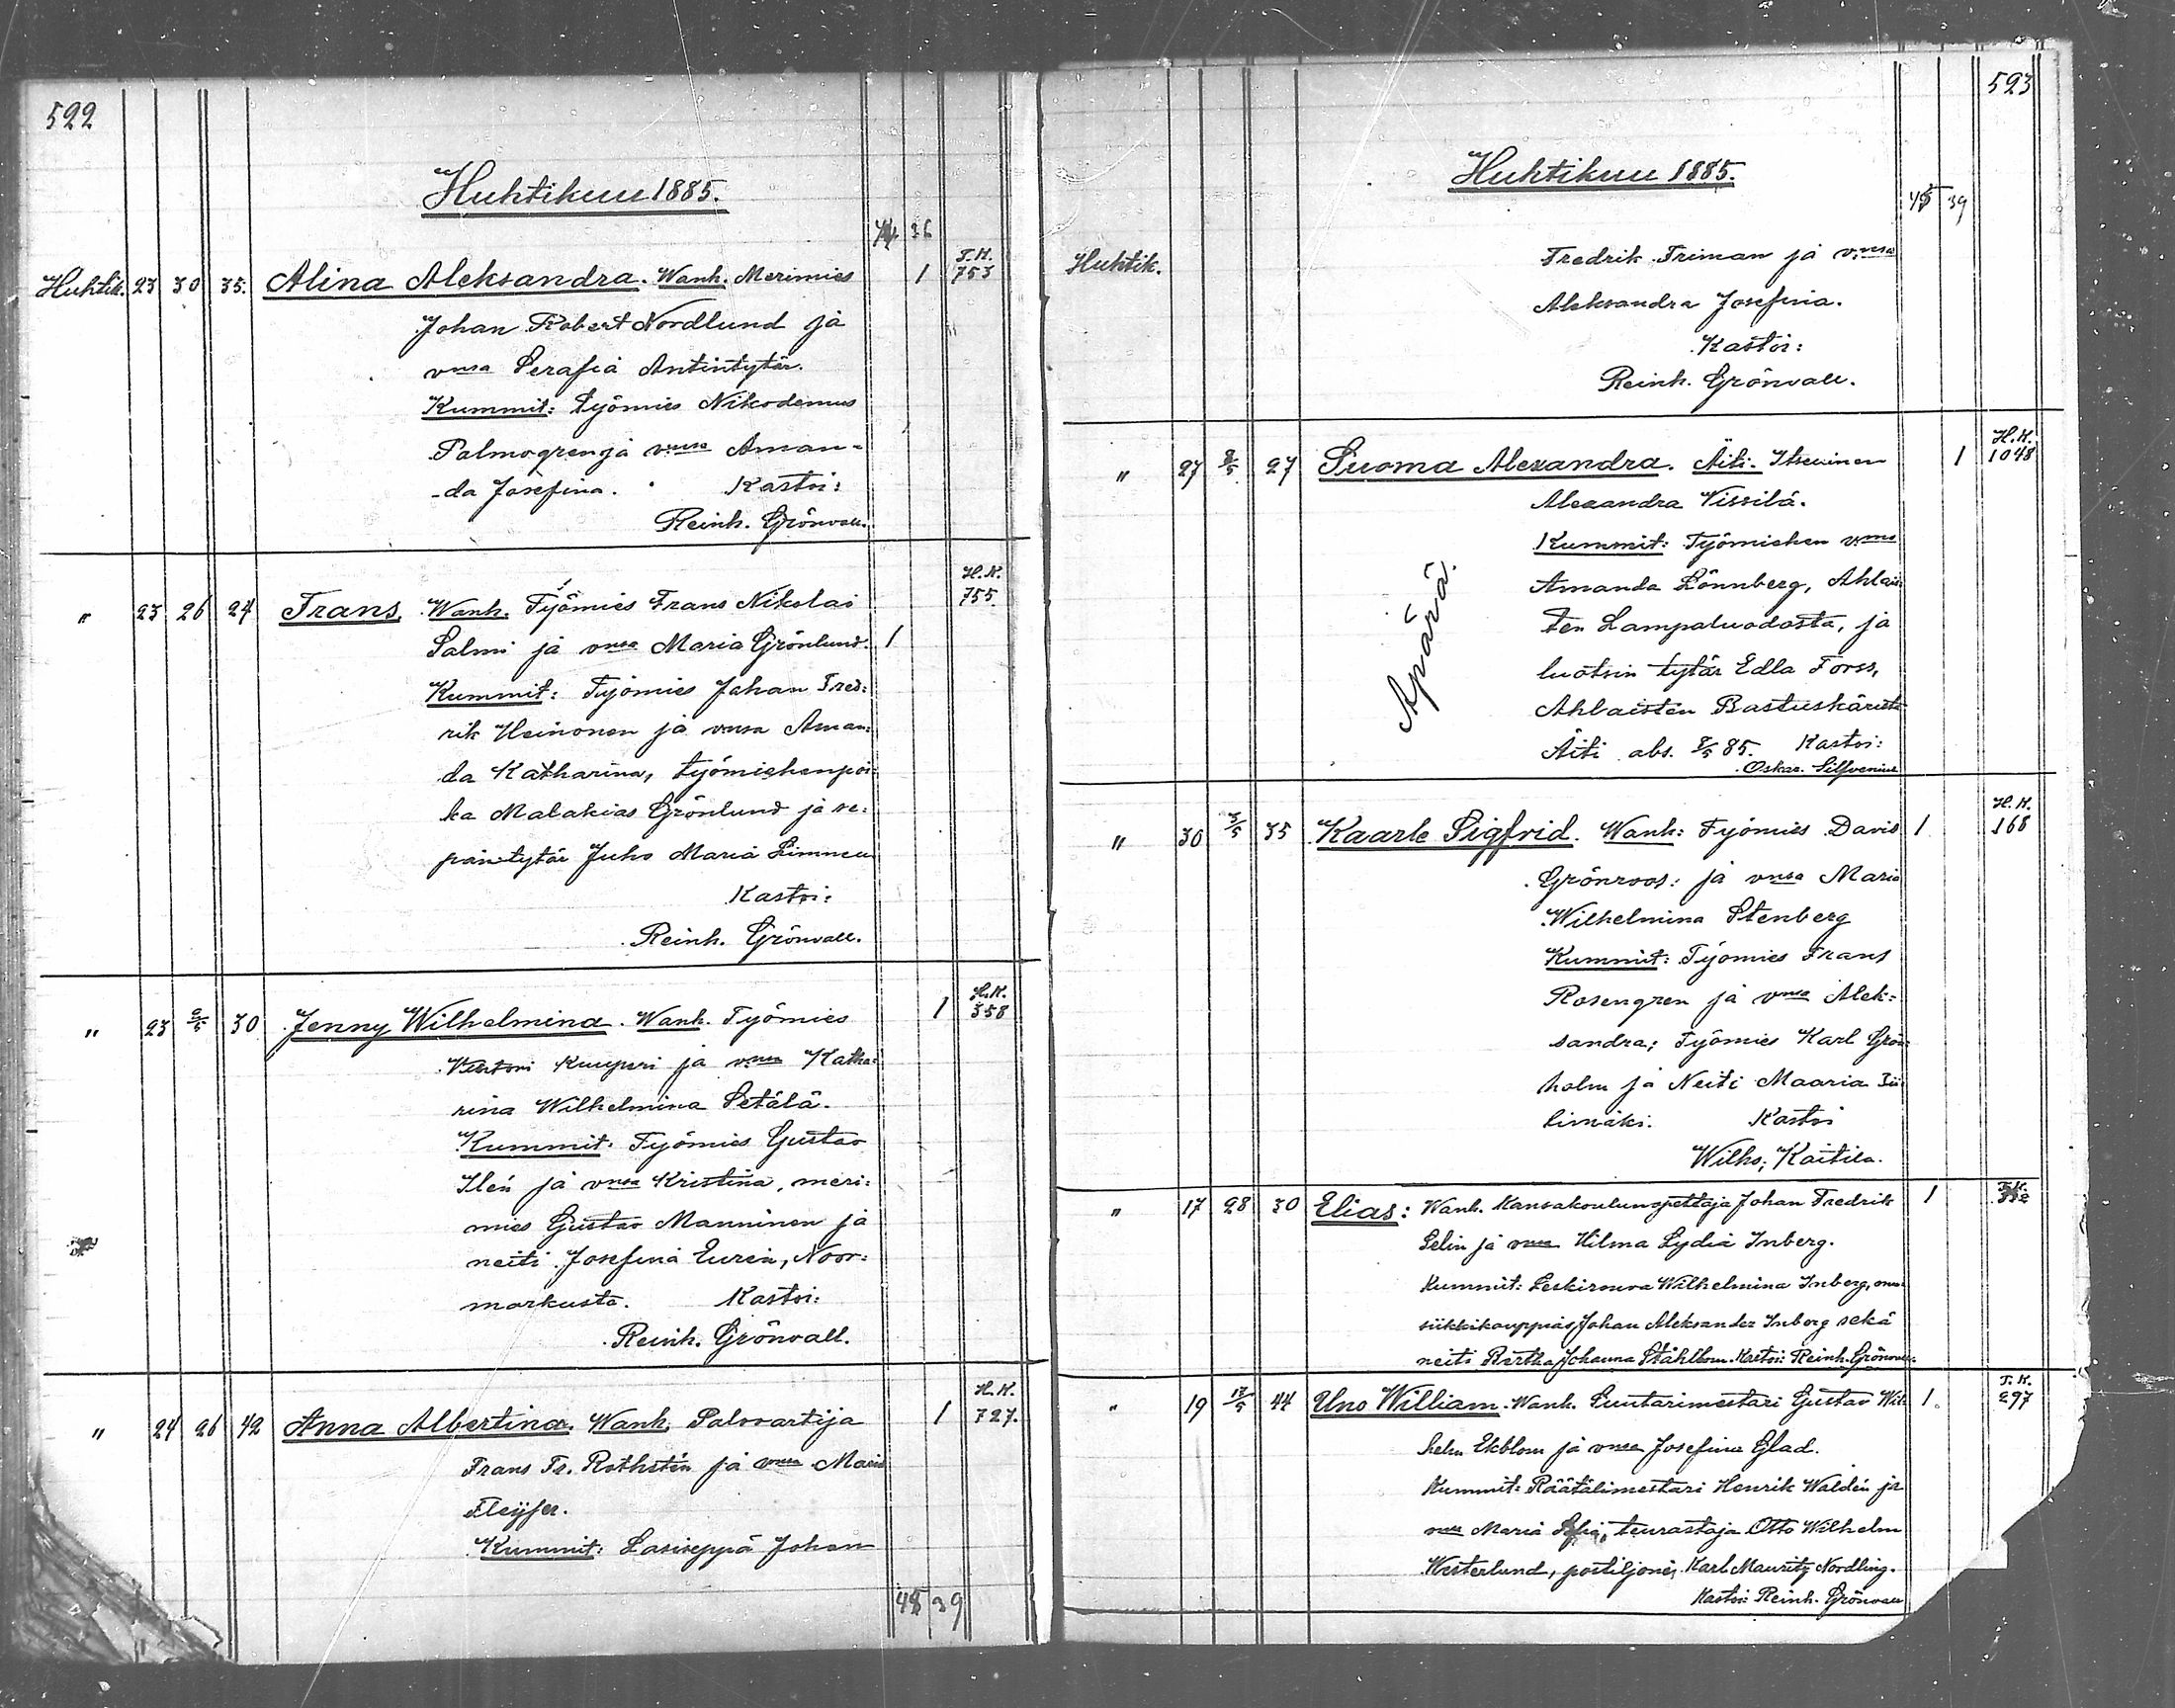 522
Huhtikuu 1885.
44 36
Huhtik. 23 30 35. Alina Aleksandra. Wanh. Merimies 1 T.K. 753
Johan Robert Nordlund ja
vmsa Serafia Antintytär.
Kummit: Työmies Nikodemus
Palmogren ja vmsa Aman-
-da Josefina. Kastoi:
Reinh. Grönvall.
" 23 26 24 Frans. Wanh. Työmies Frans Nikolai H.K. 755.
Salmi ja vmsa Maria Grönlund. 1
Kummit: Työmies Johan Fred:
rik Heinonen ja vmsa Aman:
da Katharina, työmiehenpoi:
ka Malakias Grönlund ja se:
päntytär Juho Maria
Kastoi:
Reinh. Grönvall.
" 23 2/5 30 Jenny Wilhelmina. Wanh. Työmies 1 H.K. 358
Kuupuri ja vmsa Katha:
rina Wilhelmina Setälä.
Kummit. Työmies Gustav
Ilén ja vmsa Kristina, meri:
mies Gustav Manninen ja
neiti Josefina Eurén, Noor:
markusta. Kastoi:
Reinh. Grönvall.
" 24 26 42 Anna Albertina. Wanh. Palovartija 1 H.K. 727.
Frans Fr. Rothstén ja vmsa Maria
Fleyfer.
Kummit: Lasiseppä Johan
45 39
523
Huhtikuu 1885.
45 39
Huhtik. Fredrik Friman ja vmsa
Aleksandra Josefina.
Kastoi:
Reinh. Grönvall.
" 27 8/5 27 Suoma Alexandra. Äiti. Itsellinen 1 H.K. 1048
Alexandra Vissilä.
Kummit: Työmiehen vmo
Amanda Lönnberg, Ahlais
ten Lampaluodosta, ja
luotsin tytär Edla Forss,
Ahlaisten Bastuskäristä
Äiti abs. 8/5 85. Kastoi:
Oskar Silfvenius
Äpärä.
" 30 3/5 35 Kaarle Sigfrid. Wanh: Työmies David 1 H.K. 168
Grönroos: ja vmsa Maria
Wilhelmina Stenberg
Kummit: Työmies Frans
Rosengren ja vmsa Alek:
sandra; Työmies Karl Grön:
holm ja Neiti Maaria Ii
limäki. Kastoi
Wilho; Kaitila.
" 17 28 30 Elias: Wanh. Kansakoulunopettaja Johan Fredrik 1 T.K.
Selin ja vmsa Hilma Lydia Inberg.
Kummit: Leskirouva Wilhelmina Inberg,
Johan Aleksander Inberg sekä
neiti Bertha Johanna Ståhlbom. Kastoi: Reinh. Grönvall.
" 19 17/5 44 Uno William. Wanh. Suutarimestari Gustav Wil 1. T.K. 297
helm Ekblom ja vmsa Josefina Glad.
Kummit: Räätälimestari Henrik Waldén ja
vmsa Maria Sofia, teurastaja Otto Wilhelm
Westerlund, postiljoni, Karl Mauritz Nordling.
Kastoi: Reinh. Grönvall